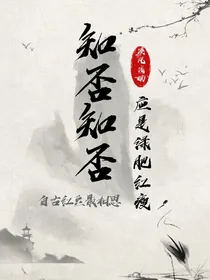 知否知否
应是绿肥红瘦
自古红尘最相思